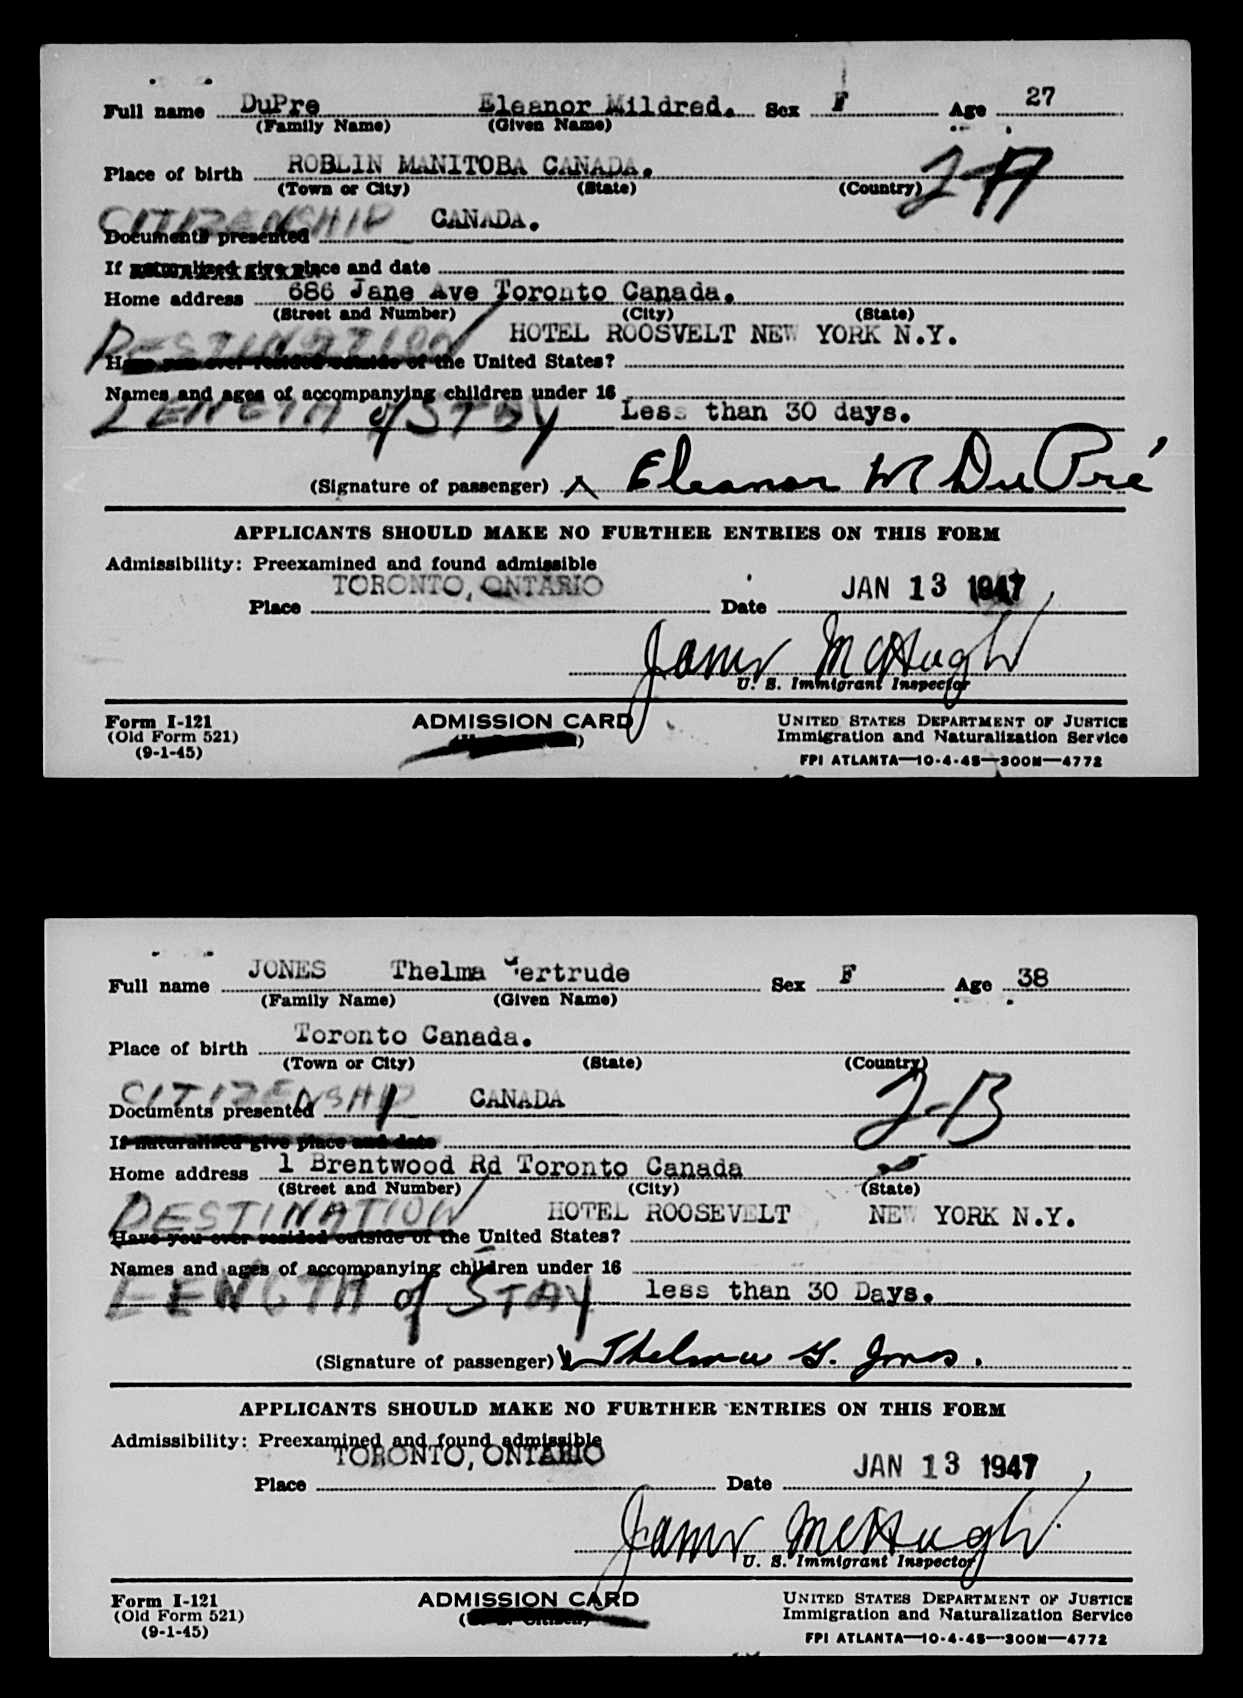 Full name DuPre Eleanor Mildred. Sex F Age 27
(Family Name) (Given Name)
Place of birth ROBLIN MANITOBA CANADA.
(Town or City) (State) (Country) 2-A
CITIZENSHIP CANADA.
Documents presented
If naturalized give place and date
Home address 686 Jane Ave Toronto Canada.
(Street and Number) (City) (State)
DESTINATION HOTEL ROOSVELT NEW YORK N.Y.
Have you ever resided outside of the United States?
Names and ages of accompanying children under 16
LENGTH of STAY Less than 30 days.
(Signature of passenger) X Eleanor M DuPré
APPLICANTS SHOULD MAKE NO FURTHER ENTRIES ON THIS FORM
Admissibility: Preexamined and found admissible
TORONTO, ONTARIO JAN 13 1947
Place Date
James McHugh
U. S. Immigrant Inspector
Form I-121 ADMISSION CARD UNITED STATES DEPARTMENT OF JUSTICE
(Old Form 521) Immigration and Naturalization Service
(9-1-45) FPI ATLANTA—10-4-45—300M—4772
Full name JONES Thelma Gertrude Sex F Age 38
(Family Name) (Given Name)
Place of birth Toronto Canada.
(Town or City) (State) (Country)
CITIZENSHIP CANADA 2-B
Documents presented
If naturalized give place and date
Home address 1 Brentwood Rd Toronto Canada
(Street and Number) (City) (State)
DESTINATION HOTEL ROOSEVELT NEW YORK N.Y.
Have you ever resided outside of the United States?
Names and ages of accompanying children under 16
LENGTH of STAY less than 30 Days.
(Signature of passenger) X Thelma G. Jones.
APPLICANTS SHOULD MAKE NO FURTHER ENTRIES ON THIS FORM
Admissibility: Preexamined and found admissible
TORONTO, ONTARIO JAN 13 1947
Place Date
James McHugh
U. S. Immigrant Inspector
Form I-121 ADMISSION CARD UNITED STATES DEPARTMENT OF JUSTICE
(Old Form 521) (U. S. Citizen) Immigration and Naturalization Service
(9-1-45) FPI ATLANTA—10-4-45—300M—4772